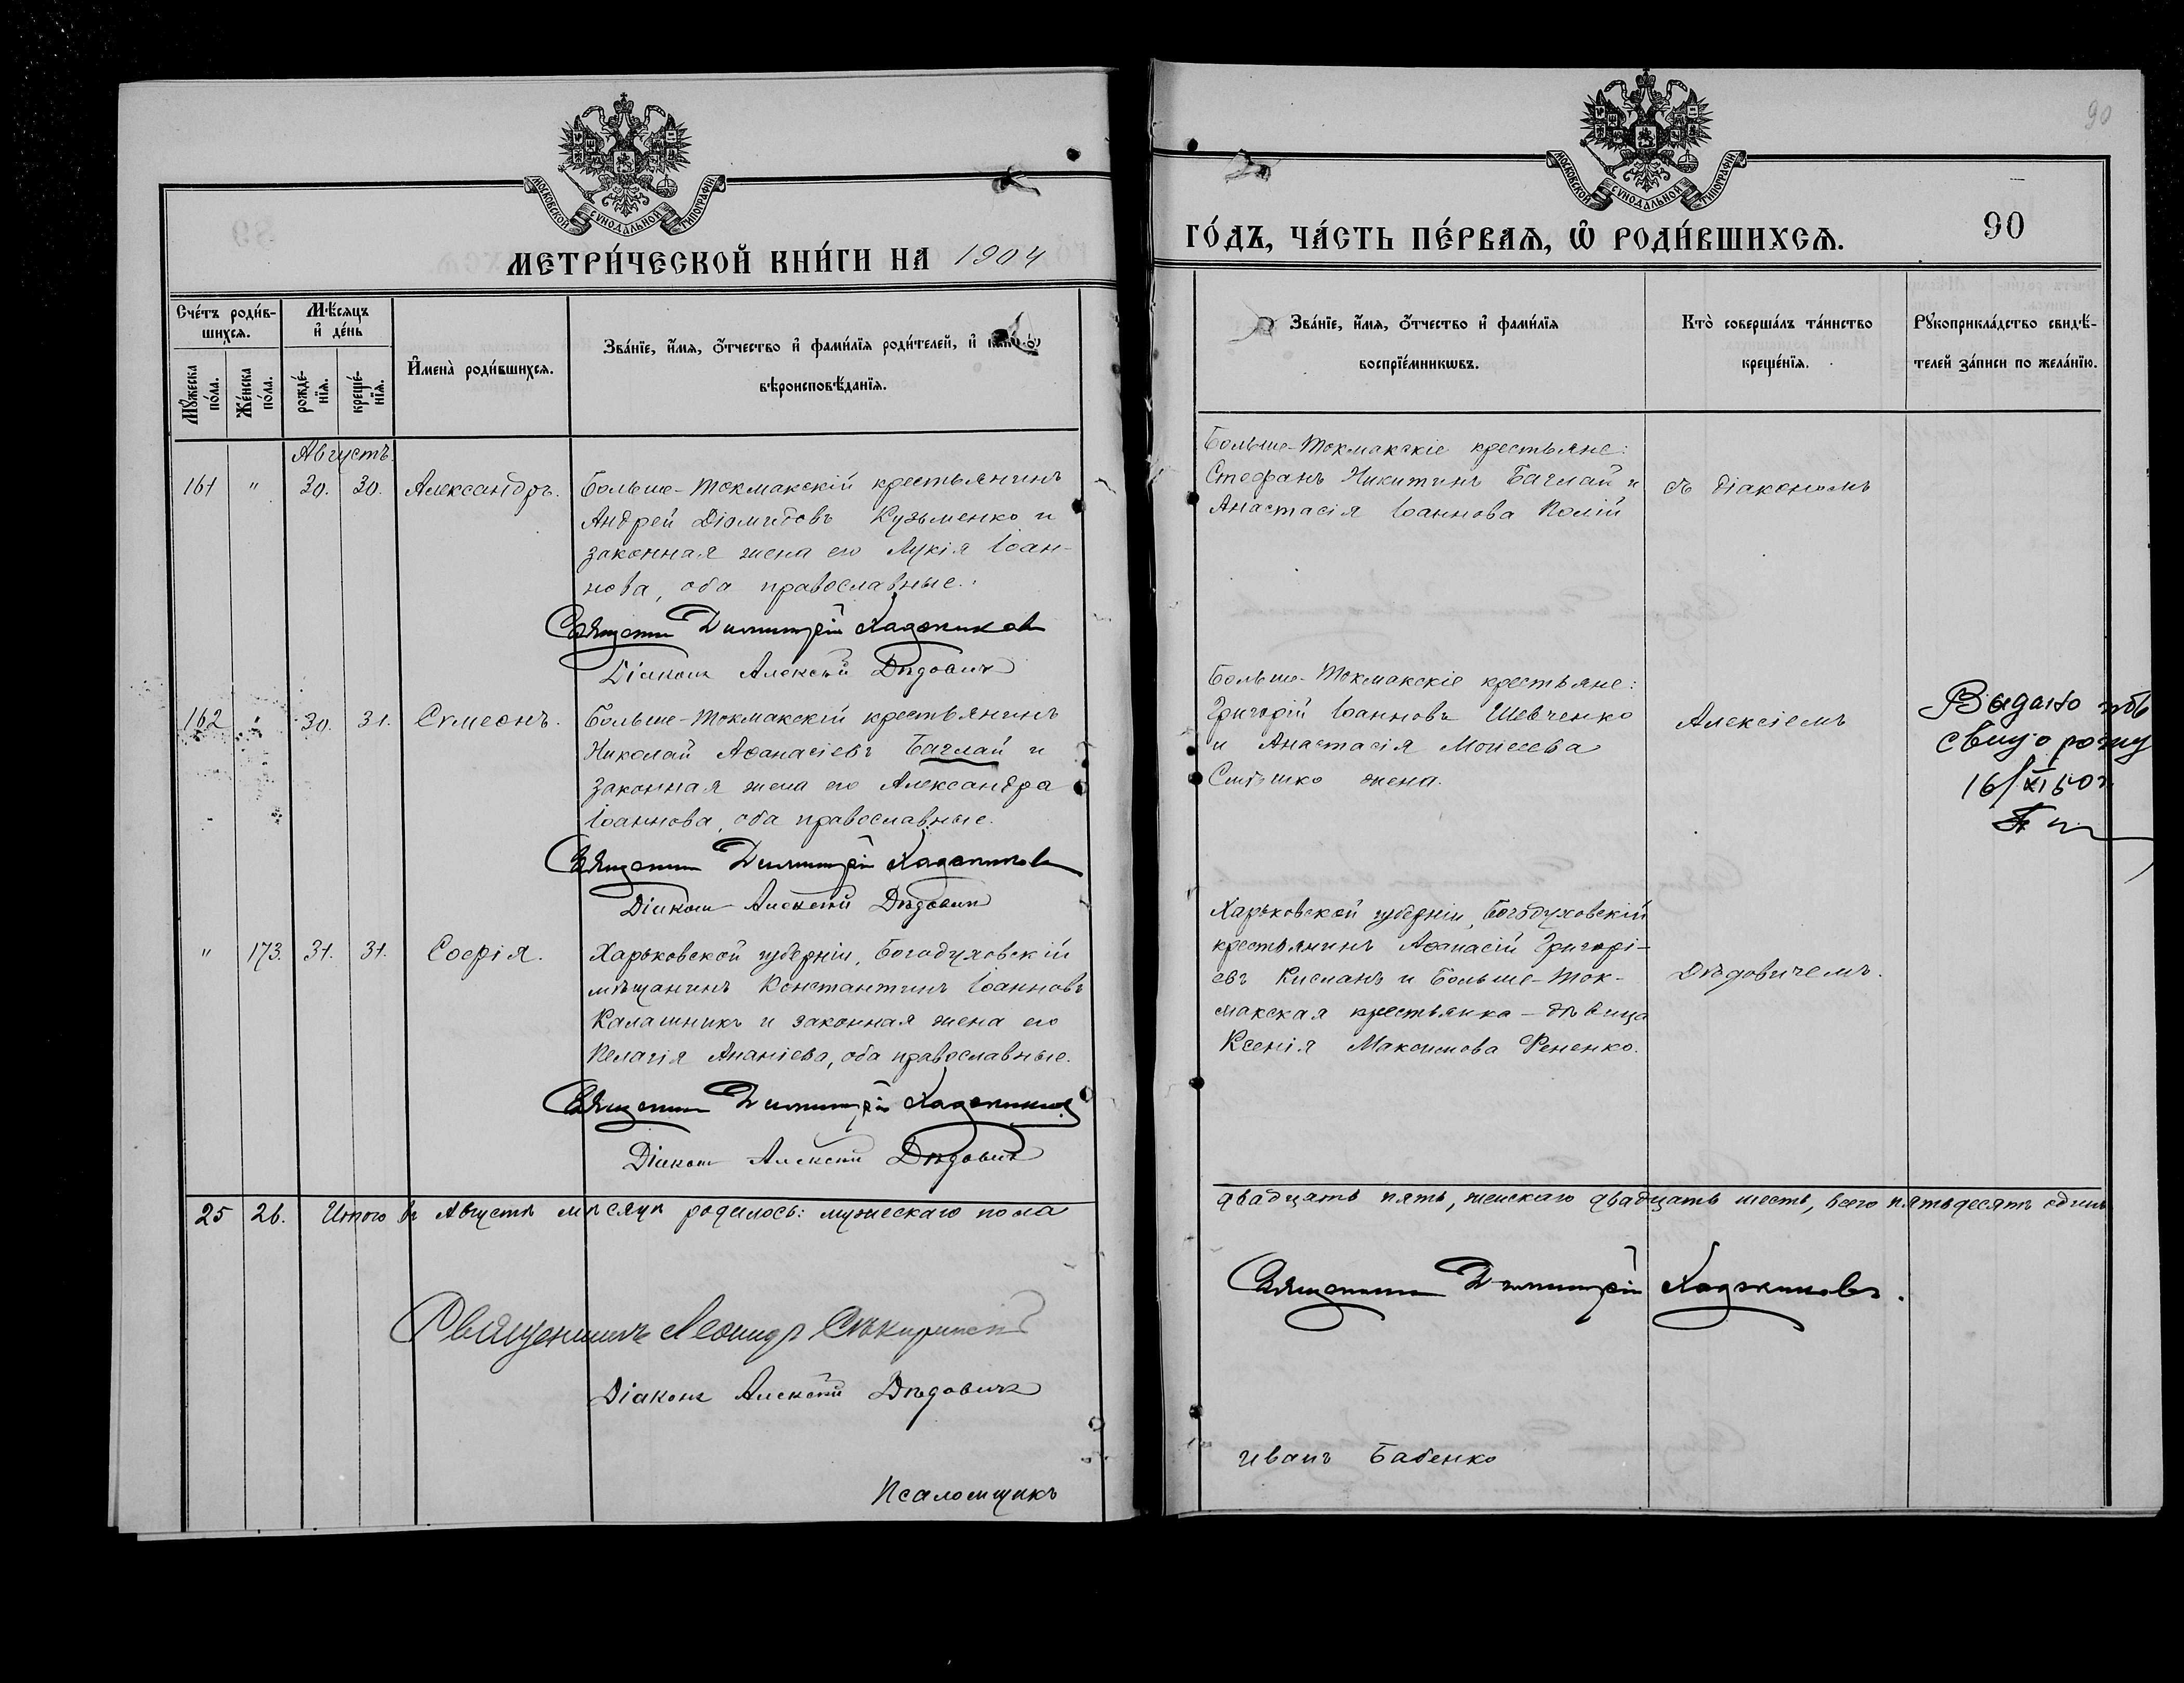 МОСКОВСКОЙ СѴНОДАЛЬНОЙ ТИПОГРАФІИ
МЕТРИ́ЧЕСКОЙ КНИ́ГИ НА 1904
Сче́тъ роди́в-
шихсѧ.
Мꙋ́жеска
по́ла.
Же́нска
по́ла.
Мѣ́сѧцъ
и҆ де́нь
рожде́-
нїѧ.
креще́-
нїѧ.
И҆мена̀ роди́вшихсѧ.
Зва́нїе, и҆́мѧ, ѻ҆́тчество и҆ фами́лїѧ роди́телей, и҆
вѣроисповѣ́данїѧ.
Августъ.
161 " 30. 30. Александръ.
Больше-Токмакскій крестьянинъ
Андрей Діомидовъ Кузьменко и
законная жена его Лукія Іоан-
нова, оба православные.
Священн Димитрій Хаджиновъ
Діаконъ Алексій Дѣдовичъ
162 " 30. 31. Сѵмеонъ.
Больше-Токмакскій крестьянинъ
Николай Аѳанасіевъ Баглай и
законная жена его Александра
Іоаннова, оба православные.
Священн Димитрій Хаджиновъ
Діаконъ Алексій Дѣдовичъ
" 173. 31. 31. Софія.
Харьковской губерніи, Богодуховскій
мѣщанинъ Константинъ Іоанновъ
Калашникъ и законная жена его
Пелагія Ананіева, оба православные.
Священн Димитрій Хаджиновъ
Діаконъ Алексій Дѣдовичъ
25 26. Итого въ Августѣ мѣсяцѣ родилось: мужескаго пола
Священникъ Леонидъ
Діаконъ Алексій Дѣдовичъ
Псаломщикъ
90
МОСКОВСКОЙ СѴНОДАЛЬНОЙ ТИПОГРАФІИ
ГО́ДЪ, ЧА́СТЬ ПЕ́РВАѦ, Ѡ҆ РОДИ́ВШИХСѦ.
90
Зва́нїе, и҆́мѧ, ѻ҆́тчество и҆ фами́лїѧ
воспрїе́мникѡвъ.
Кто̀ соверша́лъ та́инство
креще́нїѧ.
Рꙋкоприкла́дство свидѣ́-
телей за́писи по жела́нїю.
Больше-Токмакскіе крестьяне:
Стефанъ Никитинъ Баглай и
Анастасія Іоаннова Полій
съ діакономъ
Больше-Токмакскіе крестьяне:
Григорій Іоанновъ Шевченко
и Анастасія Моисеева
жена.
Алексіемъ
Выдано
свид о рожд
Харьковской губерніи, Богодуховскій
крестьянинъ Аѳанасій Григорі-
евъ Кисланъ и Больше-Ток-
макская крестьянка - дѣвица
Ксенія Максимова Рененко.
Дѣдовичемъ.
двадцать пять, женскаго двадцать шесть, всего пятьдесятъ одинъ
Священникъ Димитрій Хаджиновъ.
Иванъ Бабенко